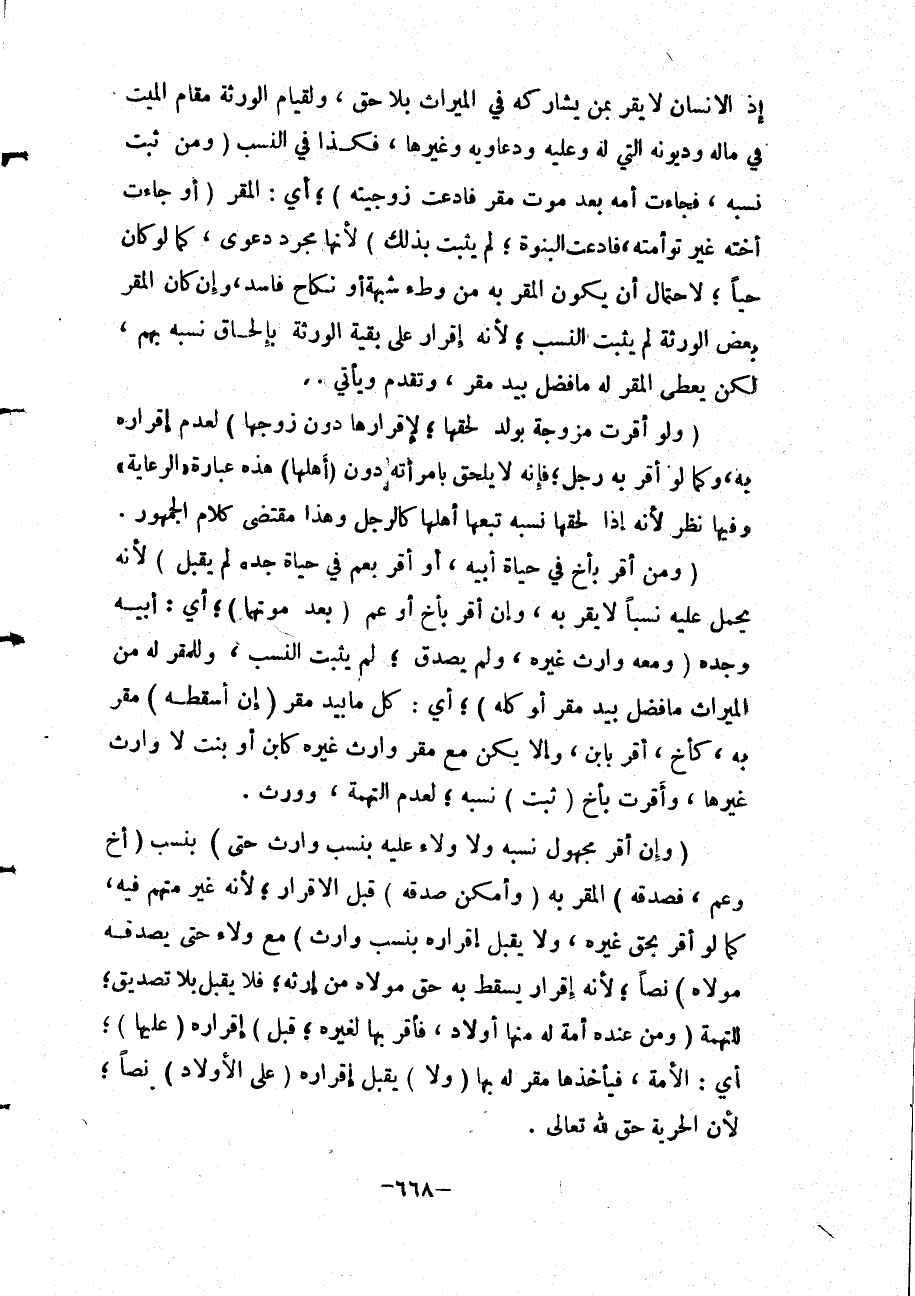 إذ الانسان لا يقر بمن يشاركه في الميراث بلا حق ، ولقيام الورثة مقام الميت
في ماله وديونه التي له وعليه ودعاويه وغيرها ، فكذا في النسب ( ومن ثبت
نسبه ، فجاءت أمه بعد موت مقر فادعت زوجيته ) ؛ أي : المقر ( أو جاءت
أخته غير توأمته ، فادعت البنوة ؛ لم يثبت بذلك ) لأنها مجرد دعوى ، كما لو كان
حياً ؛ لاحتمال أن يكون المقر به من وطء شبهة أو نكاح فاسد ، وإن كان المقر
بعض الورثة لم يثبت النسب ؛ لأنه إقرار على بقية الورثة بإلحاق نسبه بهم ،
لكن يعطى المقر له ما فضل بيد مقر ، وتقدم ويأتي . .
( ولو أقرت مزوجة بولد لحقها ؛ لإقرارها دون زوجها ) لعدم إقراره
به ، وكما لو أقر به رجل ؛ فإنه لا يلحق بامرأته دون (أهلها) هذه عبارة «الرعاية»
وفيها نظر لأنه إذا لحقها نسبه تبعها أهلها كالرجل وهذا مقتضى كلام الجمهور .
( ومن أقر بأخ في حياة أبيه ، أو أقر بعم في حياة جده لم يقبل ) لأنه
يحمل عليه نسباً لا يقر به ، وإن أقر بأخ أو عم ( بعد موتهما ) ؛ أي : أبيه
وجده ( ومعه وارث غيره ، ولم يصدق ؛ لم يثبت النسب ، وللمقر له من
الميراث ما فضل بيد مقر أو كله ) ؛ أي : كل ما بيد مقر ( إن أسقطه ) مقر
به ، كأخ ، أقر بابن ، وإلا يكن مع مقر وارث غيره كابن أو بنت لا وارث
غيرها ، وأقرت بأخ ( ثبت ) نسبه ؛ لعدم التهمة ، وورث .
( وإن أقر مجهول نسبه ولا ولاء عليه بنسب وارث حتى ) بنسب ( أخ
وعم ، فصدقه ) المقر به ( وأمكن صدقه ) قبل الاقرار ؛ لأنه غير متهم فيه ،
كما لو أقر بحق غيره ، ولا يقبل إقراره بنسب وارث ) مع ولاء حتى يصدقه
مولاه ) نصاً ؛ لأنه إقرار يسقط به حق مولاه من إرثه ؛ فلا يقبل بلا تصديق ؛
للتهمة ( ومن عنده أمة له منها أولاد ، فأقر بها لغيره ؛ قبل ) إقراره ( عليها ) ؛
أي : الأمة ، فيأخذها مقر له بها ( ولا ) يقبل إقراره ( على الأولاد ) نصاً ؛
لأن الحرية حق لله تعالى .
-٦٦٨-